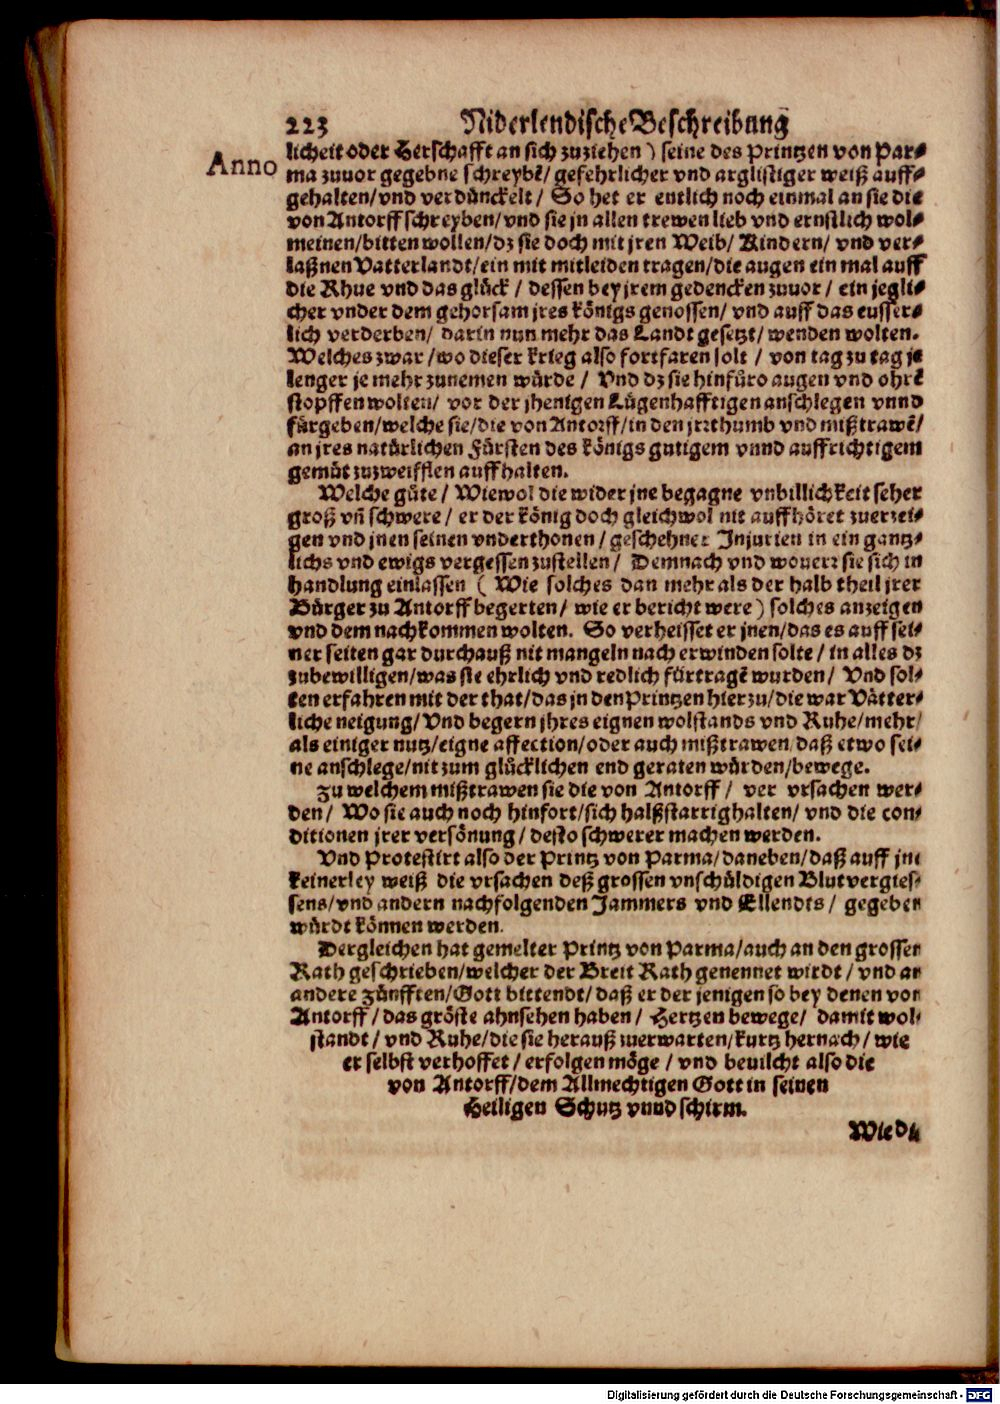 223 Niderlendische Beschreibung
Anno
licheit oder Herschafft an sich zuziehen) seine des Printzen von Par⸗
ma zuuor gegebne schreybẽ/ gefehrlicher vnd arglistiger weiß auff⸗
gehalten/vnd verdůnckelt/ So het er entlich noch einmal an sie die
von Antorff schreyben/vnd sie jn allen trewen lieb vnd ernstlich wol⸗
meinen/bitten wollen/dz sie doch mit jren Weib/ Kindern/ vnd ver⸗
laßnen Vatterlandt/ein mit mitleiden tragen/die augen ein mal auff
die Rhue vnd das glůck/ dessen bey jrem gedencken zuuor/ ein jegli⸗
cher vnder dem gehorsam jres königs genossen/ vnd auff das eusser⸗
lich verderben/ darin nun mehr das Landt gesetzt/ wenden wolten.
Welches zwar/wo dieser krieg also fortfaren solt/ von tag zu tag je
lenger je mehr zunemen wůrde/ Vnd dz sie hinfůro augen vnd ohrẽ
stopffen wolten/ vor der jhenigen Lůgenhafftigen anschlegen vnnd
fůrgeben/welche sie/die von Antorff/in den jrrthumb vnd mißtrawẽ/
an jres natůrlichen Fůrsten des königs gutigem vnnd auffrichtigem
gemůt zuzweifflen auffhalten.
Welche gůte/ Wiewol die wider jne begagne vnbillichkeit seher
groß vñ schwere/ er der könig doch gleichwol nit auffhöret zuerzei⸗
gen vnd jnen seinen vnderthonen/ geschehner Injurien in ein gantz⸗
lichs vnd ewigs vergessen zustellen/ Demnach vnd wouerr sie sich in
handlung einlassen (Wie solches dan mehr als der halb theil jrer
Bůrger zu Antorff begerten/ wie er bericht were) solches anzeigen
vnd dem nachkommen wolten. So verheisset er jnen/das es auff sei⸗
ner seiten gar durchauß nit mangeln nach erwinden solte/ in alles dz
zubewilligen/was sie ehrlich vnd redlich fůrtragẽ wurden/ Vnd sol⸗
ten erfahren mit der that/das jn den Printzen hierzu/die war Vätter⸗
liche neigung/ Vnd begern jhres eignen wolstands vnd Ruhe/mehr/
als einiger nutz/eigne affection/oder auch mißtrawen/daß etwo sei⸗
ne anschlege/nit zum glůcklichen end geraten wůrden/bewege.
zu welchem mißtrawen sie die von Antorff/ ver vrsachen wer⸗
den/ Wo sie auch noch hinfort/sich halßstarrig halten/ vnd die con⸗
ditionen jrer versönung/ desto schwerer machen werden.
Vnd Protestirt also der Printz von Parma/daneben/daß auff jn
keinerley weiß die vrsachen deß grossen vnschůldigen Blutvergies⸗
sens/vnd andern nachfolgenden Jammers vnd Ellendts/ gegeben
wůrdt können werden.
Dergleichen hat gemelter Printz von Parma/auch an den grossen
Rath geschrieben/welcher der Breit Rath genennet wirdt/ vnd an
andere zůnfften/Gott bittendt/daß er der jenigen so bey denen von
Antorff/das gröste ahnsehen haben/ Hertzen bewege/ damit wol⸗
standt/ vnd Ruhe/die sie herauß zuerwarten/kurtz hernach/ wie
er selbst verhoffet/ erfolgen möge/ vnd beuilcht also die
von Antorff/dem Allmechtigen Gott in seinen
Heiligen Schutz vnnd schirm.
Wie di
Digitalisierung gefördert durch die Deutsche Forschungsgemeinschaft - DFG